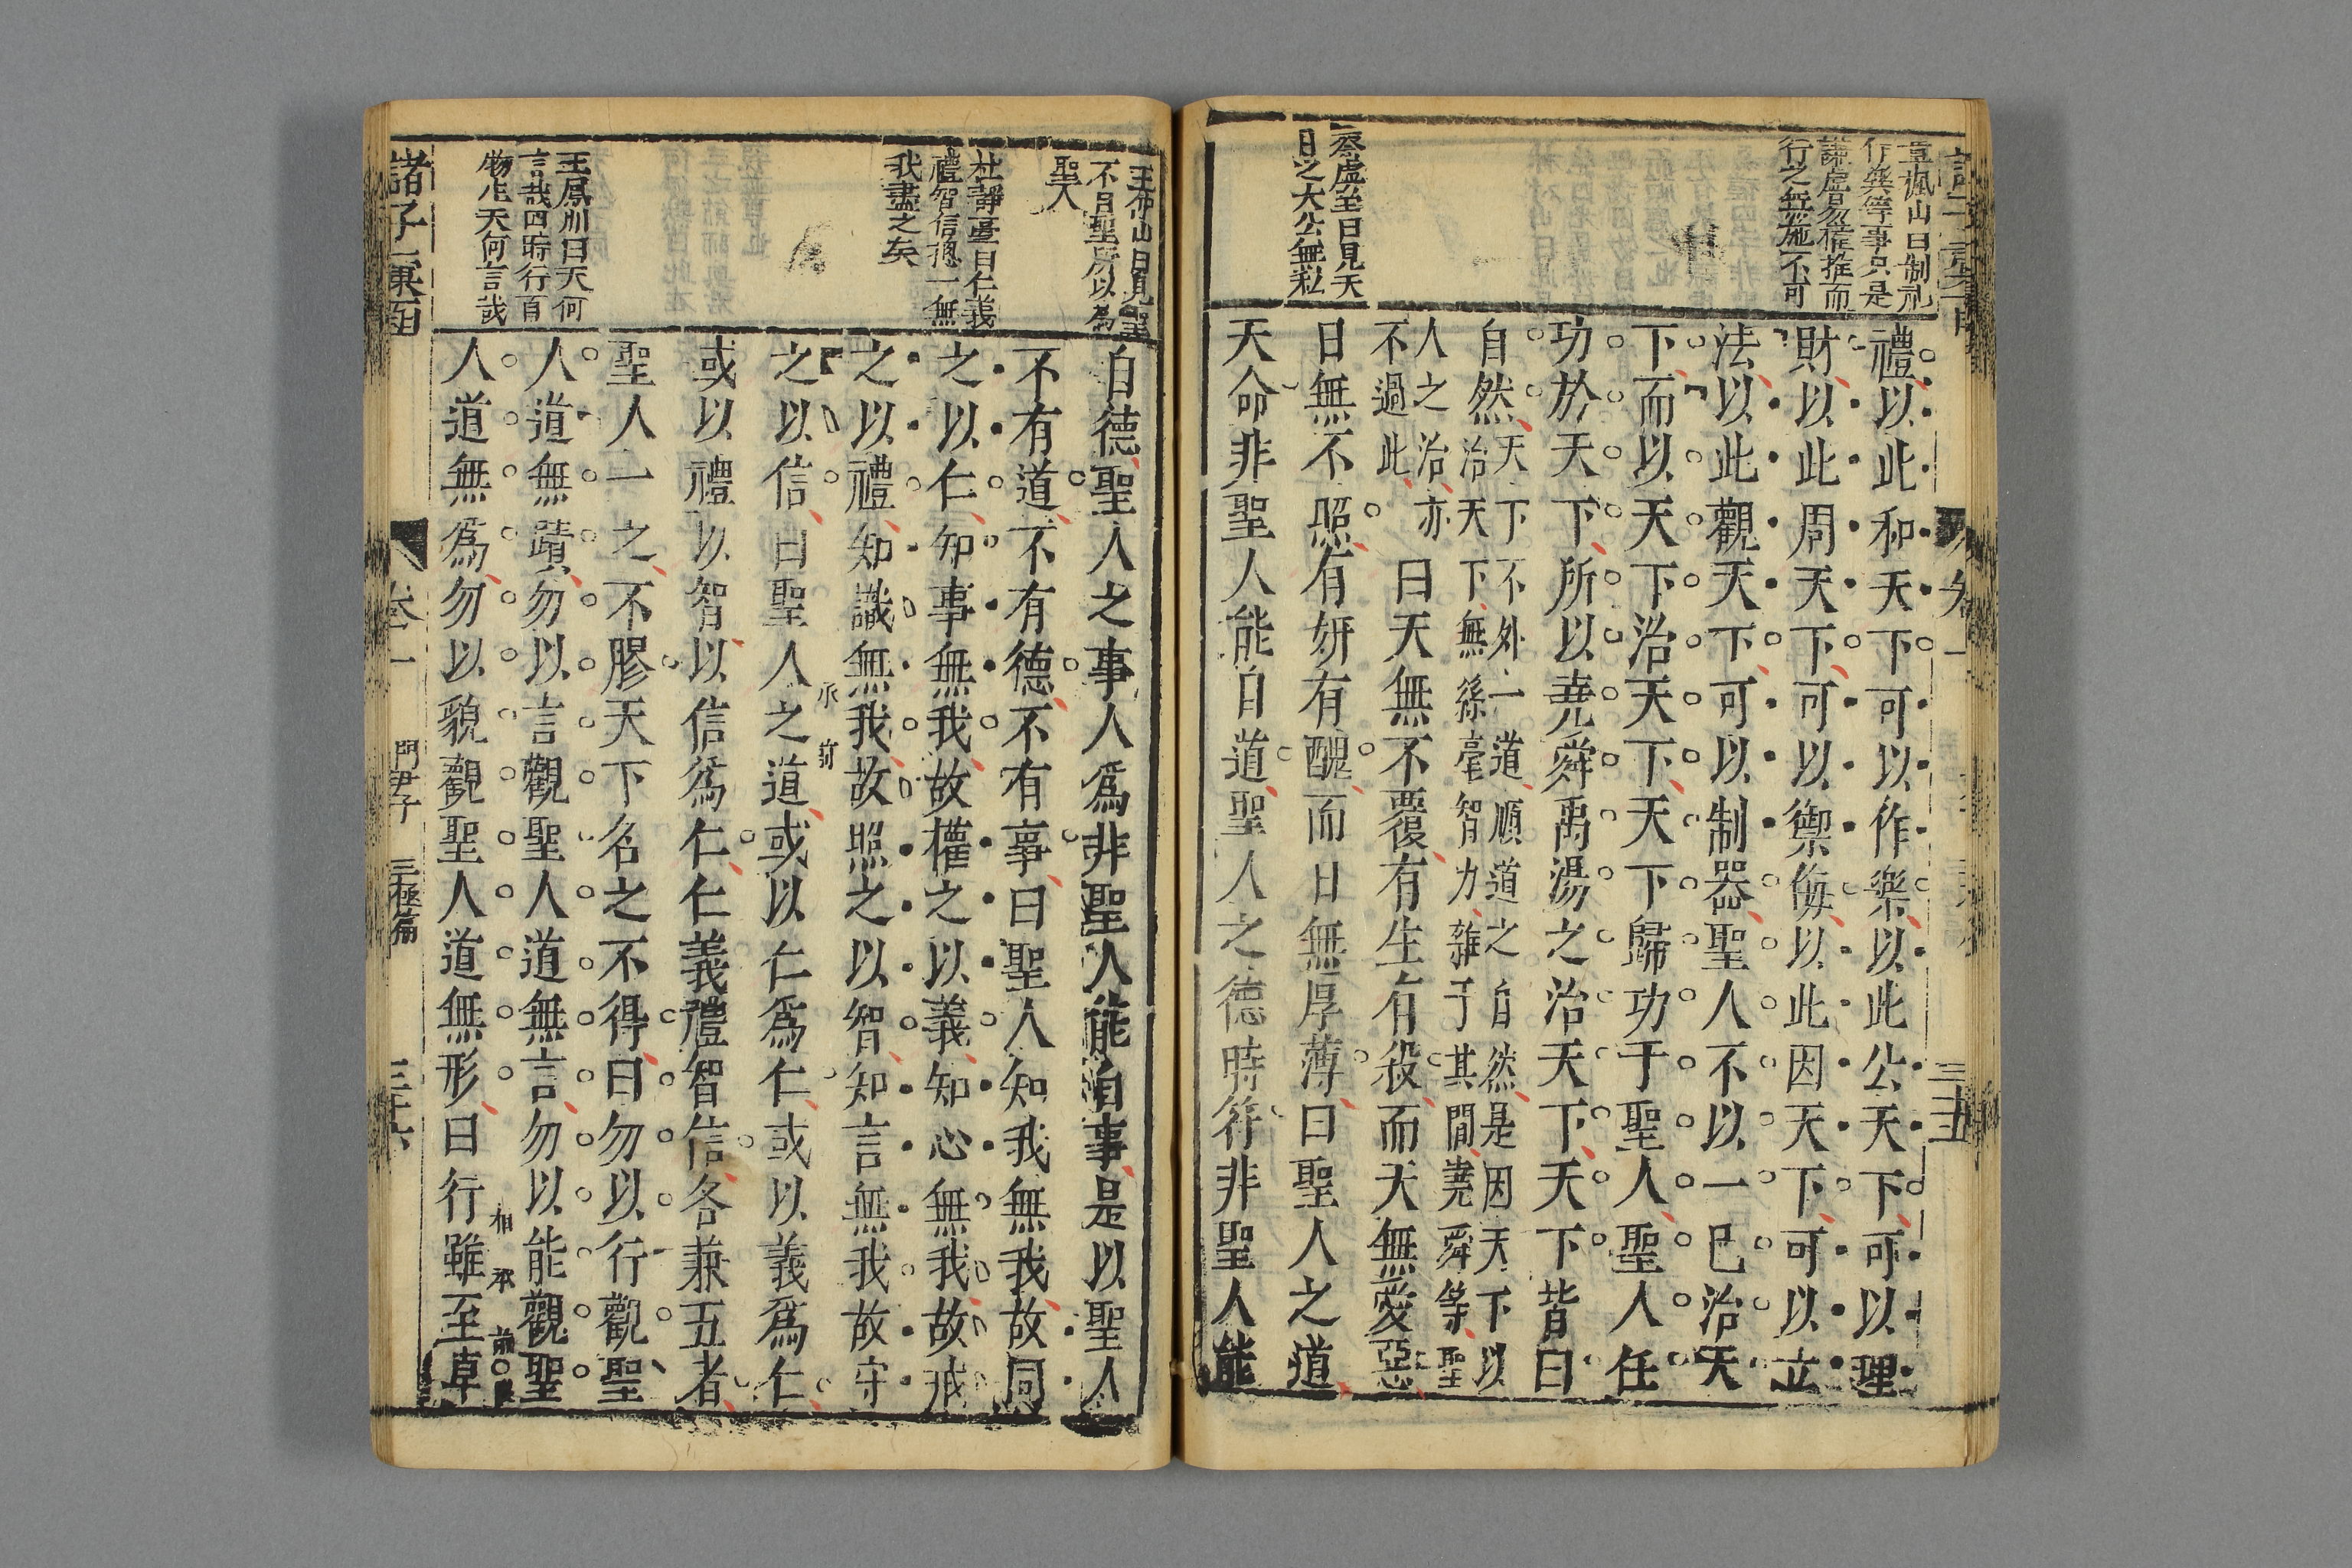 章楓山曰制礼
作樂等事只是
謙虚勿權推而
行之無施不可
禮以此和天下可以作樂以此公天下可以理
財以此周天下可以禦侮以此因天下可以立
法以此觀天下可以制器聖人不以一己治天
下而以天下治天下天下歸功于聖人聖人任
功於天下所以堯舜禹湯之治天下天下皆曰
自然
天下不外一道順道之自然是因天下以
治天下無絲毫智力雜于其間堯舜等聖
人之治亦
不過此
曰天無不覆有生有殺而天無愛惡
蔡虛至曰見天
日之大公無私
日無不照有妍有醜而日無厚薄曰聖人之道
天命非聖人能自道聖人之德時符非聖人能
卷一
三十五
曰見聖
不自聖所以為
聖人
自德聖人之事人爲非聖人能自事是以聖人
不有道不有德不有事曰聖人知我無我故同
杜靜臺曰仁義
禮智信摠一無
我盡之矣
之以仁知事無我故權之以義知心無我故戒
之以禮知識無我故照之以智知言無我故守
之以信曰聖人之道或以仁爲仁或以義爲仁
或以禮以智以信爲仁仁義禮智信各兼五者
聖人一之不膠天下名之不得曰勿以行觀聖
王鳳洲曰天何
言哉四時行百
物生天何言哉
人道無蹟勿以言觀聖人道無言勿以能觀聖
人道無爲勿以貌觀聖人道無形曰行雖至卓
諸子彙函
卷一
關尹子
三極篇
三十六